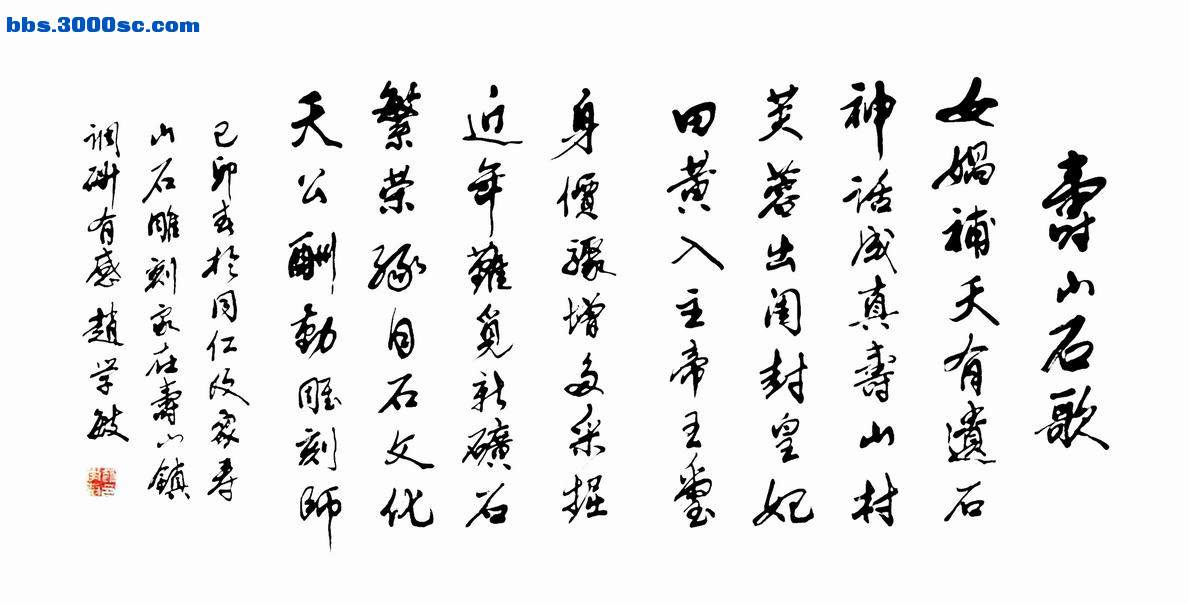 bbs.3000sc.com
壽山石歌
女媧補天有遺石
神話成真壽山村
芙蓉出閣封皇妃
田黄入主帝王璽
身價驟增多采掘
近年難覓新礦石
繁荣緣自石文化
天公酬勤雕刻師
己卯春於同仁及家寿
山石雕刻家在壽山鎮
调研有感趙学敏